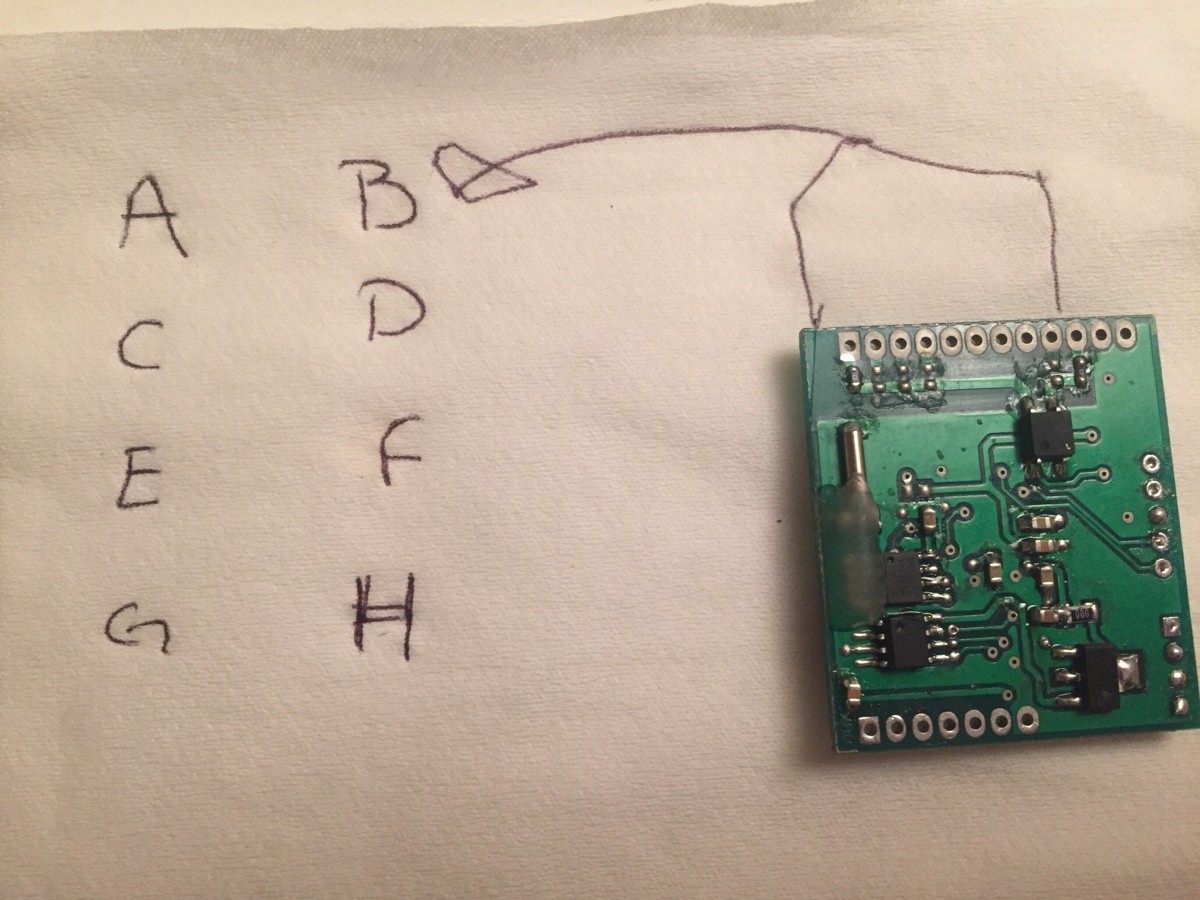 A B
C D
E F
G H